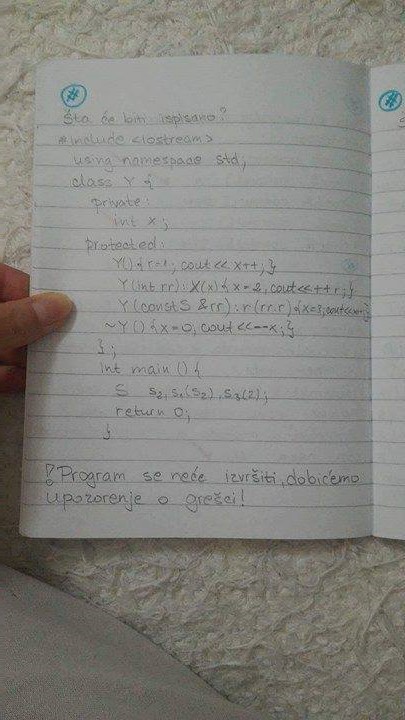 #
Šta će biti ispisano?
#include <iostream>
using namespace std;
class Y {
private:
int x;
protected:
Y(){r=1; cout<< x++;}
Y(int rr): X(x){x=2, cout<<++r;}
Y(const S &rr): r(rr.r){x=3;cout<<x++;}
~Y(){x=0, cout<<--x;}
};
int main(){
S s2, s1(s2), s3(2);
return 0;
}
! Program se neće izvršiti, dobićemo
upozorenje o grešci!
#